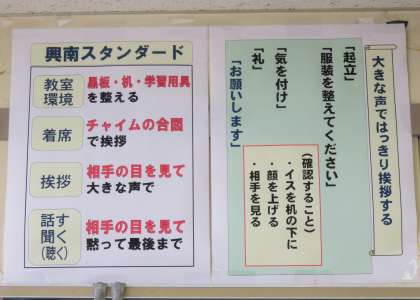 興南スタンダード
教室
環境
黒板・机・学習用具
を整える
着席
チャイムの合図
で挨拶
挨拶
相手の目を見て
大きな声で
話す
聞く
(聴く)
相手の目を見て
黙って最後まで
大きな声ではっきり挨拶する
「起立」
「服装を整えてください」
(確認すること)
・イスを机の下に
・顔を上げる
・相手を見る
「気を付け」
「礼」
「お願いします」